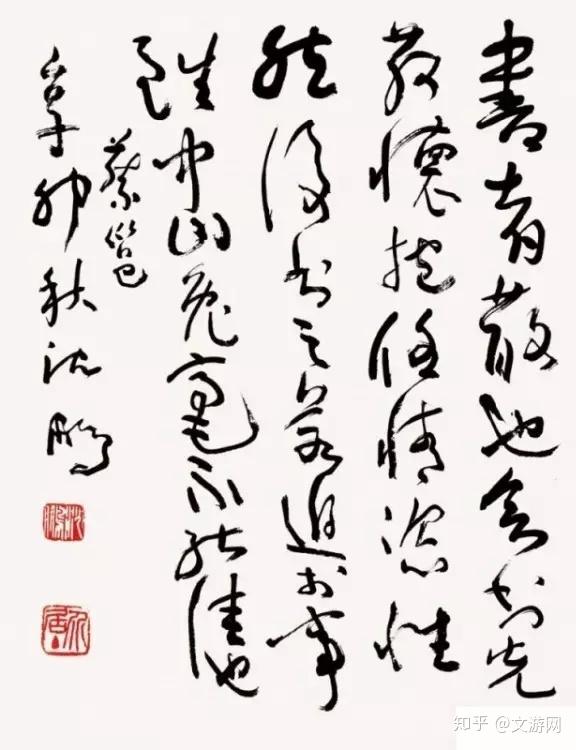 書者散也欲书先
散懷抱任情恣性
然後书之若迫於事
雖中山兔毫不能佳也
蔡邕
辛卯秋沈鵬
知乎 @文游网